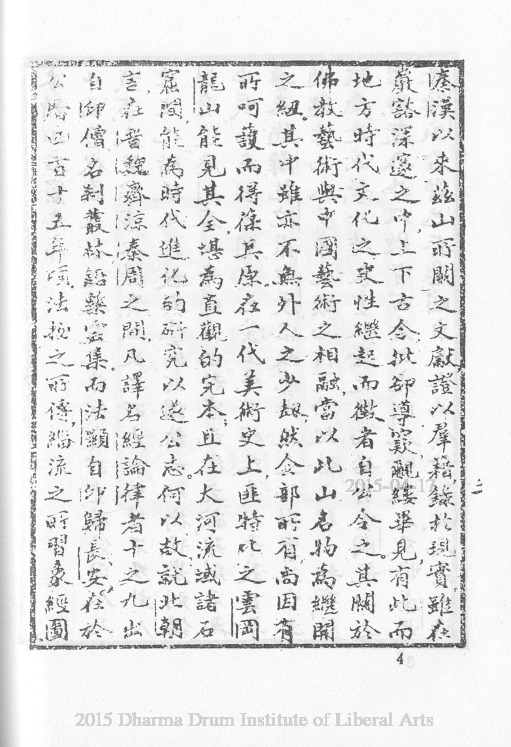 秦漢以來茲山所關之文獻證以羣籍錄於現實雖在
巖谿深邃之中上下古今批郤導窾覼縷畢見有此而
地方時代文化之史性繼起而徵者自公今之其關於
佛教藝術與中國藝術之相融當以此山名物為繼開
之紐其中雖亦不無外人之少劫然全部所有尚因有
所呵護而得葆其原在一代美術史上匪特比之雲岡
龍山能見其全堪為直觀的完本且在大河流域諸石
窟間能為時代進化的研究以遂公志何以故就北朝
言在晉魏齊涼秦周之間凡譯名經論律者十之九出
自仰僧名刹叢林語藝雲集而法顯自仰歸長安在於
公曆四百十五年頃法教之所傳緇流之所習象經圖
二
4
2015-04-17
2015 Dharma Drum Institute of Liberal Arts